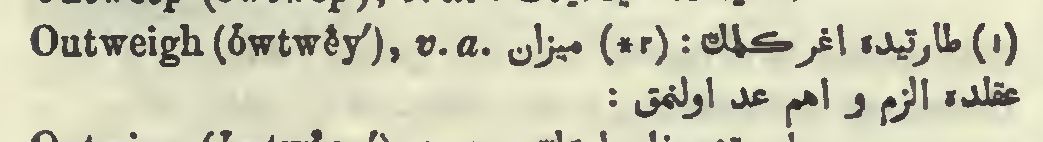 Outweigh (ówtwêy′), v. a. (۱) طارتیده اغر كلمك : (*۲) میزان
عقلده الزم و اهم عد اولنمق :